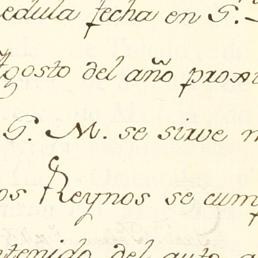 edula fecha en S.
Agosto del año proxi
S. M. se sirve
os Reynos se cum
ntenido del auto a